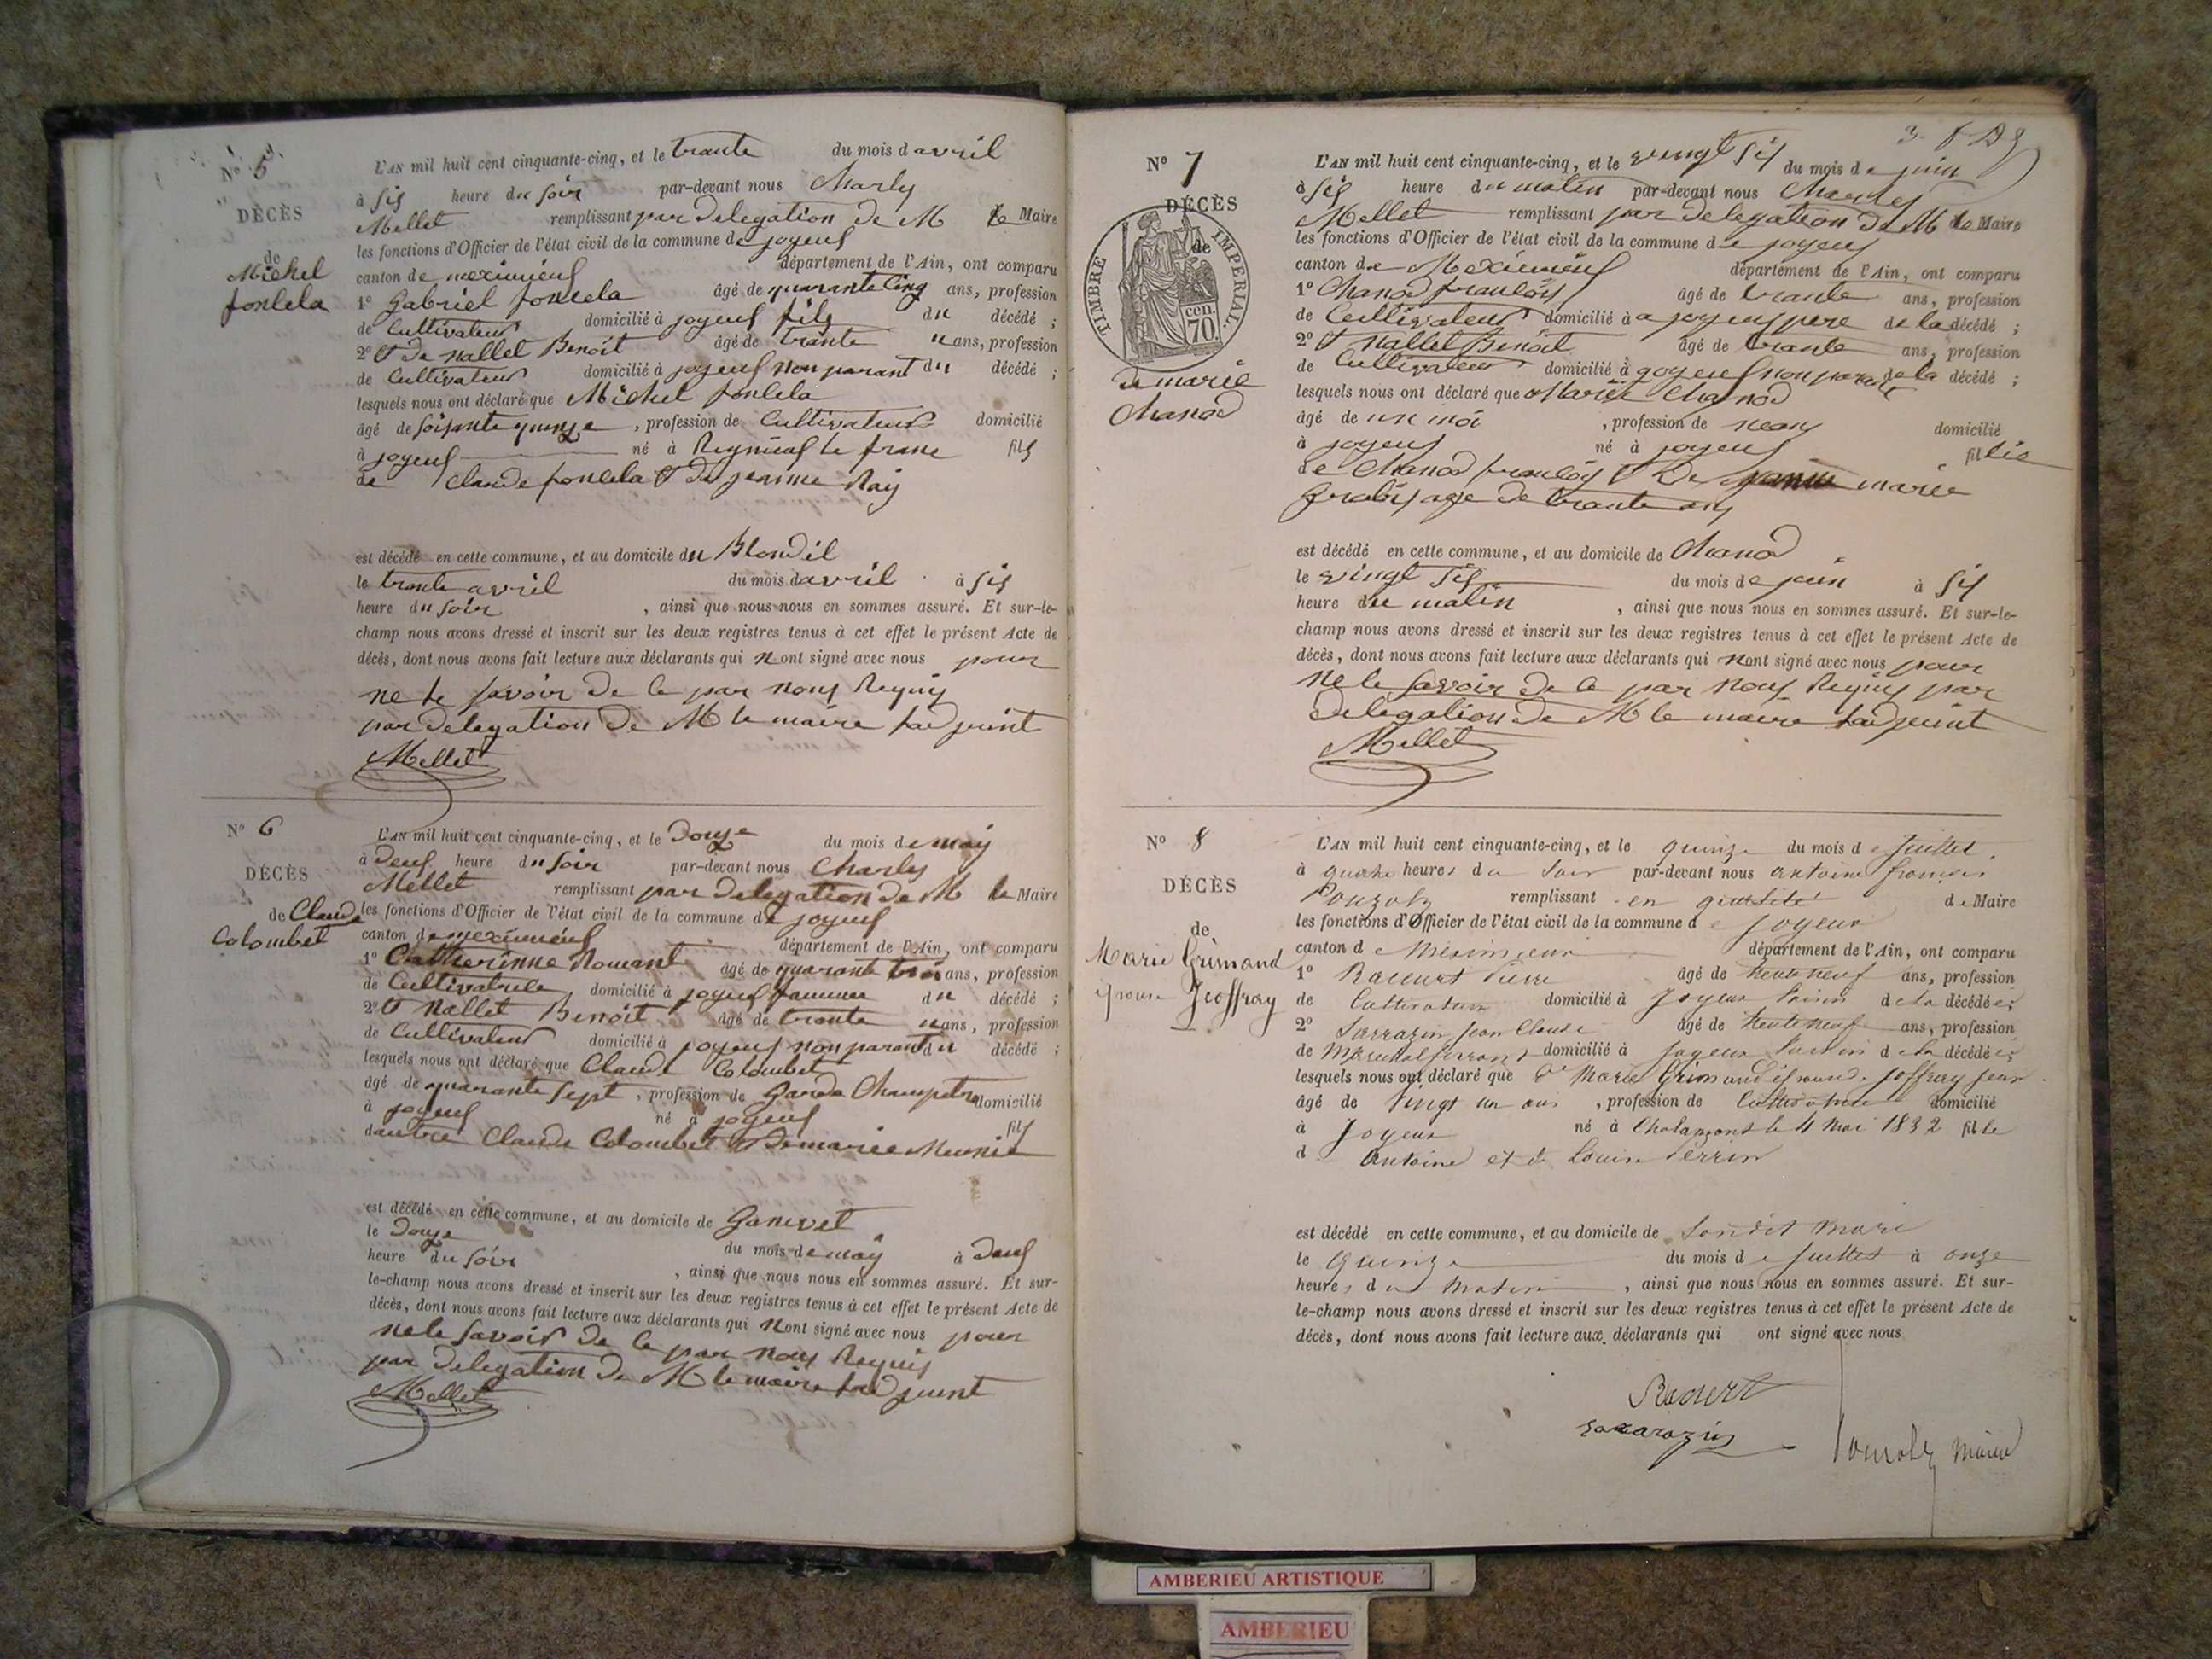 N° 5
DÉCÈS
de
Michel
fonlela
L'AN mil huit cent cinquante-cinq, et le trante du mois d avril
à sis heure du soir par-devant nous Charly
Mellet remplissant par delegation de M le Maire
les fonctions d'Officier de l'état civil de la commune de joyeus
canton de meximieus département de l'Ain, ont comparu
1° Gabriel fonlela âgé de quarante cinq ans, profession
de Cultivateur domicilié à joyeus fils du décédé ;
2° et de Nallet Benoit âgé de trante ans, profession
de Cultivateur domicilié à joyeus non parant du décédé ;
lesquels nous ont déclaré que Michel fonlela
âgé de soisante quinze , profession de Cultivateur domicilié
à joyeus né à Reynieus le franc fils
de Claude fonlela et de jeanne Ray
est décédé en cette commune, et au domicile du Blondil
le trante avril du mois d avril à sis
heure du soir , ainsi que nous nous en sommes assuré. Et sur-le-
champ nous avons dressé et inscrit sur les deux registres tenus à cet effet le présent Acte de
décès, dont nous avons fait lecture aux déclarants qui n ont signé avec nous pour
ne le savoir de ce par nous Requis
par delegation de M le maire ladjoint
Mellet
N° 6
DÉCÈS
de Claude
Colombet
L'AN mil huit cent cinquante-cinq, et le douze du mois de may
à deus heure du soir par-devant nous Charly
Mellet remplissant par delegation de M le Maire
les fonctions d'Officier de l'état civil de la commune de joyeus
canton de meximieus département de l'Ain, ont comparu
1° Catherinne âgé de quarante troi ans, profession
de Cultivatrice domicilié à joyeus famme du décédé ;
2° et Nallet Benoit âgé de trante ans, profession
de Cultivateur domicilié à joyeus non parant du décédé ;
lesquels nous ont déclaré que Claude Colombet
âgé de quarante sept , profession de Garde Champetre domicilié
à joyeus né à joyeus fils
d autre Claude Colombet et de marie Meunie
est décédé en cette commune, et au domicile de Ganivet
le douze du mois de may à deus
heure du soir , ainsi que nous nous en sommes assuré. Et sur-
le-champ nous avons dressé et inscrit sur les deux registres tenus à cet effet le présent Acte de
décès, dont nous avons fait lecture aux déclarants qui n ont signé avec nous pour
ne le savoir de ce par nous Requis
par delegation de M le maire ladjoint
Mellet
N° 7
DÉCÈS
de
TIMBRE IMPERIAL.
70 cen.
de marie
Chanod
L'AN mil huit cent cinquante-cinq, et le vingt sis du mois de juin
à sis heure du matin par-devant nous Charles
Mellet remplissant par delegation de M le Maire
les fonctions d'Officier de l'état civil de la commune de joyeus
canton de Meximieus département de l'Ain, ont comparu
1° Chanod francois âgé de trante ans, profession
de Cultivateur domicilié à a joyeus pere de la décédé ;
2° et Nallet Benoit âgé de trante ans, profession
de Cultivateur domicilié à joyeus non parante de la décédé ;
lesquels nous ont déclaré que Marie Chanod
âgé de un moi , profession de neans domicilié
à joyeus né à joyeus fillie
de Chanod francois et de marie
age de trante ans
est décédé en cette commune, et au domicile de Chanod
le vingt sis du mois de juin à sis
heure du matin , ainsi que nous nous en sommes assuré. Et sur-le-
champ nous avons dressé et inscrit sur les deux registres tenus à cet effet le présent Acte de
décès, dont nous avons fait lecture aux déclarants qui n ont signé avec nous pour
ne le savoir de ce par nous Requis par
delegation de M le maire ladjoint
Mellet
N° 8
DÉCÈS
de
Marie Grimand
épouse Jeoffray
L'AN mil huit cent cinquante-cinq, et le quinze du mois de Juillet
à quatre heures du soir par-devant nous antoine françois
Pouzols remplissant en qualité de Maire
les fonctions d'Officier de l'état civil de la commune de Joyeux
canton de Meximieux département de l'Ain, ont comparu
1° Racurt Pierre âgé de trente neuf ans, profession
de Cultivateur domicilié à Joyeux voisin de la décédée ;
2° Sarrazin Jean Claude âgé de trente neuf ans, profession
de Maréchal ferrant domicilié à Joyeux voisin de la décédée ;
lesquels nous ont déclaré que Marie Grimand épouse Joffray Jean
âgé de vingt un ans , profession de Cultivatrice domicilié
à Joyeux né à Chalançons le 4 mai 1832 fille
d Antoine et de Louise Perrin
est décédé en cette commune, et au domicile de son dit mari
le Quinze du mois de Juillet à onze
heures du matin , ainsi que nous nous en sommes assuré. Et sur-
le-champ nous avons dressé et inscrit sur les deux registres tenus à cet effet le présent Acte de
décès, dont nous avons fait lecture aux déclarants qui ont signé avec nous
Racurt
Sararazin
Pouzols maire
AMBERIEU ARTISTIQUE
AMBERIEU